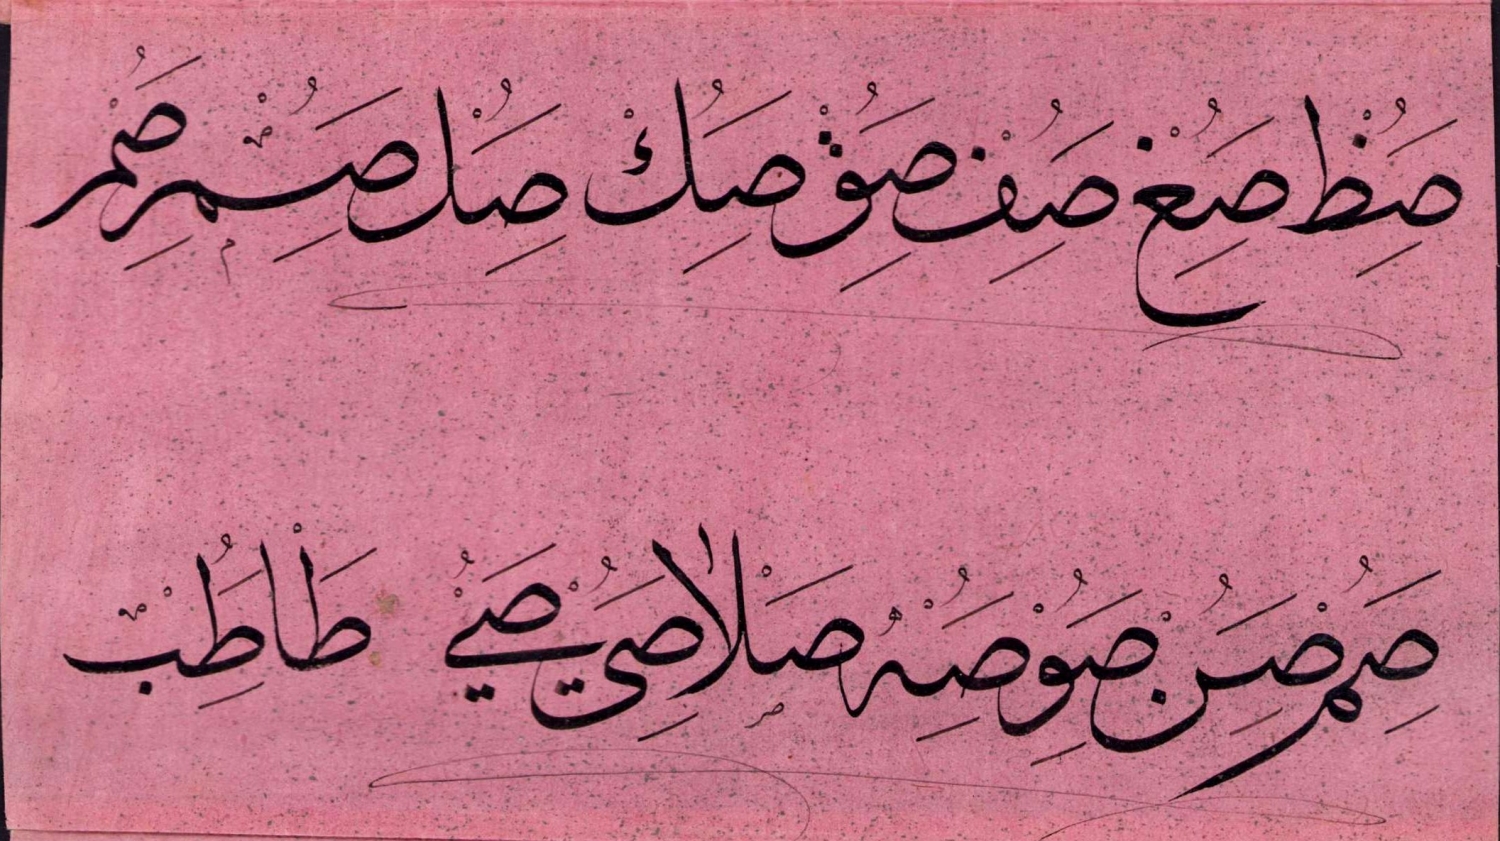 صظ صغ صف صو صك صل صم صم
صم صن صو صه صلا صى صے طا طب